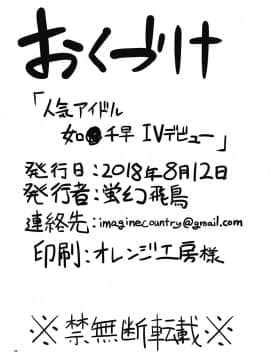 おくづけ
「人気アイドル
如●千早 IVデビュー」
発行日：2018年8月12日
発行者：蛍幻飛鳥
連絡先：imaginecountry@gmail.com
印刷：オレンジ工房様
※禁無断転載※